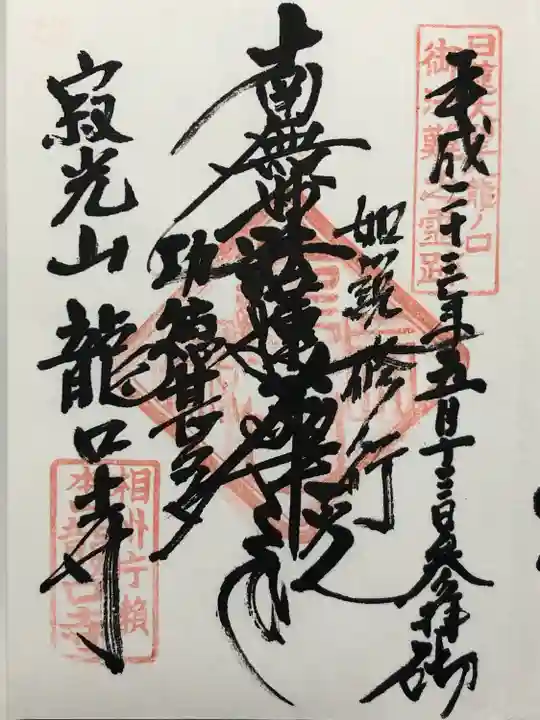 平成二十三年五月十三日参拝砌
如説修行
南無妙法蓮華経
功徳甚多
寂光山 龍口寺
御法難之霊跡
龍ノ口
相州片瀬
本山龍口寺